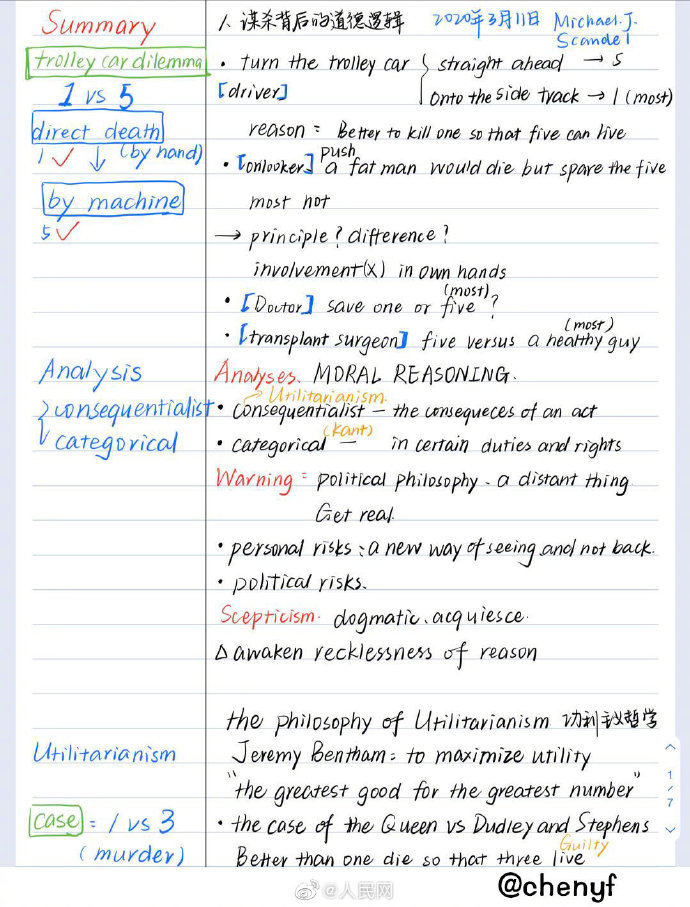 Summary
trolley car dilemma
1 vs 5
direct death
1 ✓ ↓ (by hand)
by machine
5 ✓
1. 谋杀背后的道德逻辑 2020年3月11日 Michael.J.
Scandel
• turn the trolley car { straight ahead → 5
[driver] onto the side track → 1 (most)
reason = Better to kill one so that five can live
push
• [onlooker] a fat man would die but spare the five
most not
→ principle? difference?
involvement(X) in own hands
(most)
• [Doutor] save one or five?
(most)
• [transplant surgeon] five versus a healthy guy
Analysis
consequentialist
categorical
Analyses. MORAL REASONING.
→ Utilitarianism
• consequentialist — the consequeces of an act
(Kant)
• categorical — in certain duties and rights
Warning = political philosophy、a distant thing
Get real.
• personal risks: a new way of seeing and not back.
• political risks.
Scepticism. dogmatic、acquiesce.
△ awaken recklessness of reason
the philosophy of Utilitarianism 功利主义哲学
Utilitarianism
Jeremy Bentham= to maximize utility
"the greatest good for the greatest number"
case = 1 vs 3
(murder)
• the case of the Queen vs Dudley and Stephens
Guilty
Better than one die so that three live
1/7
@人民网
@chenyf